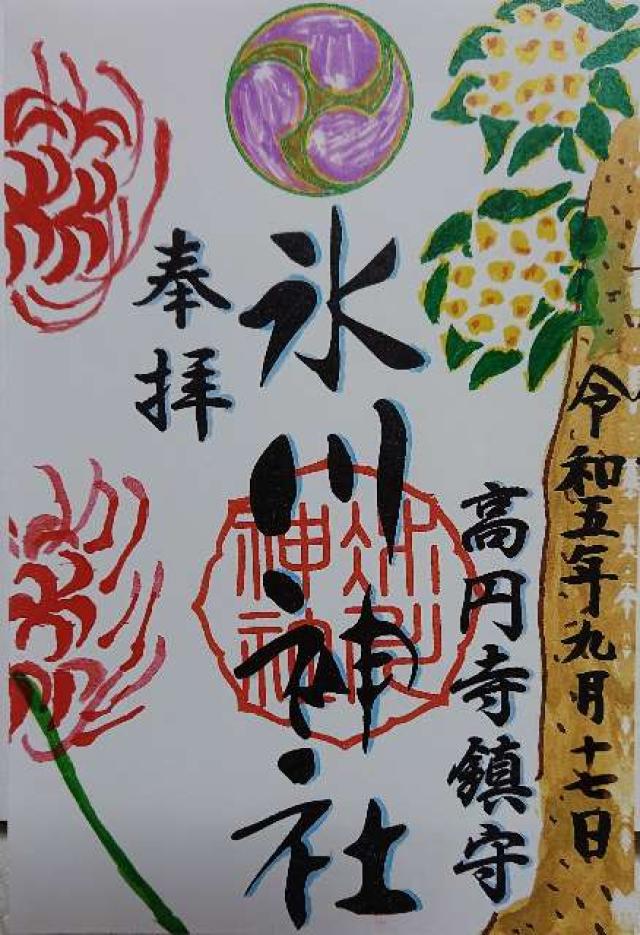 令和五年九月十七日
高円寺鎮守
氷川神社
奉拝